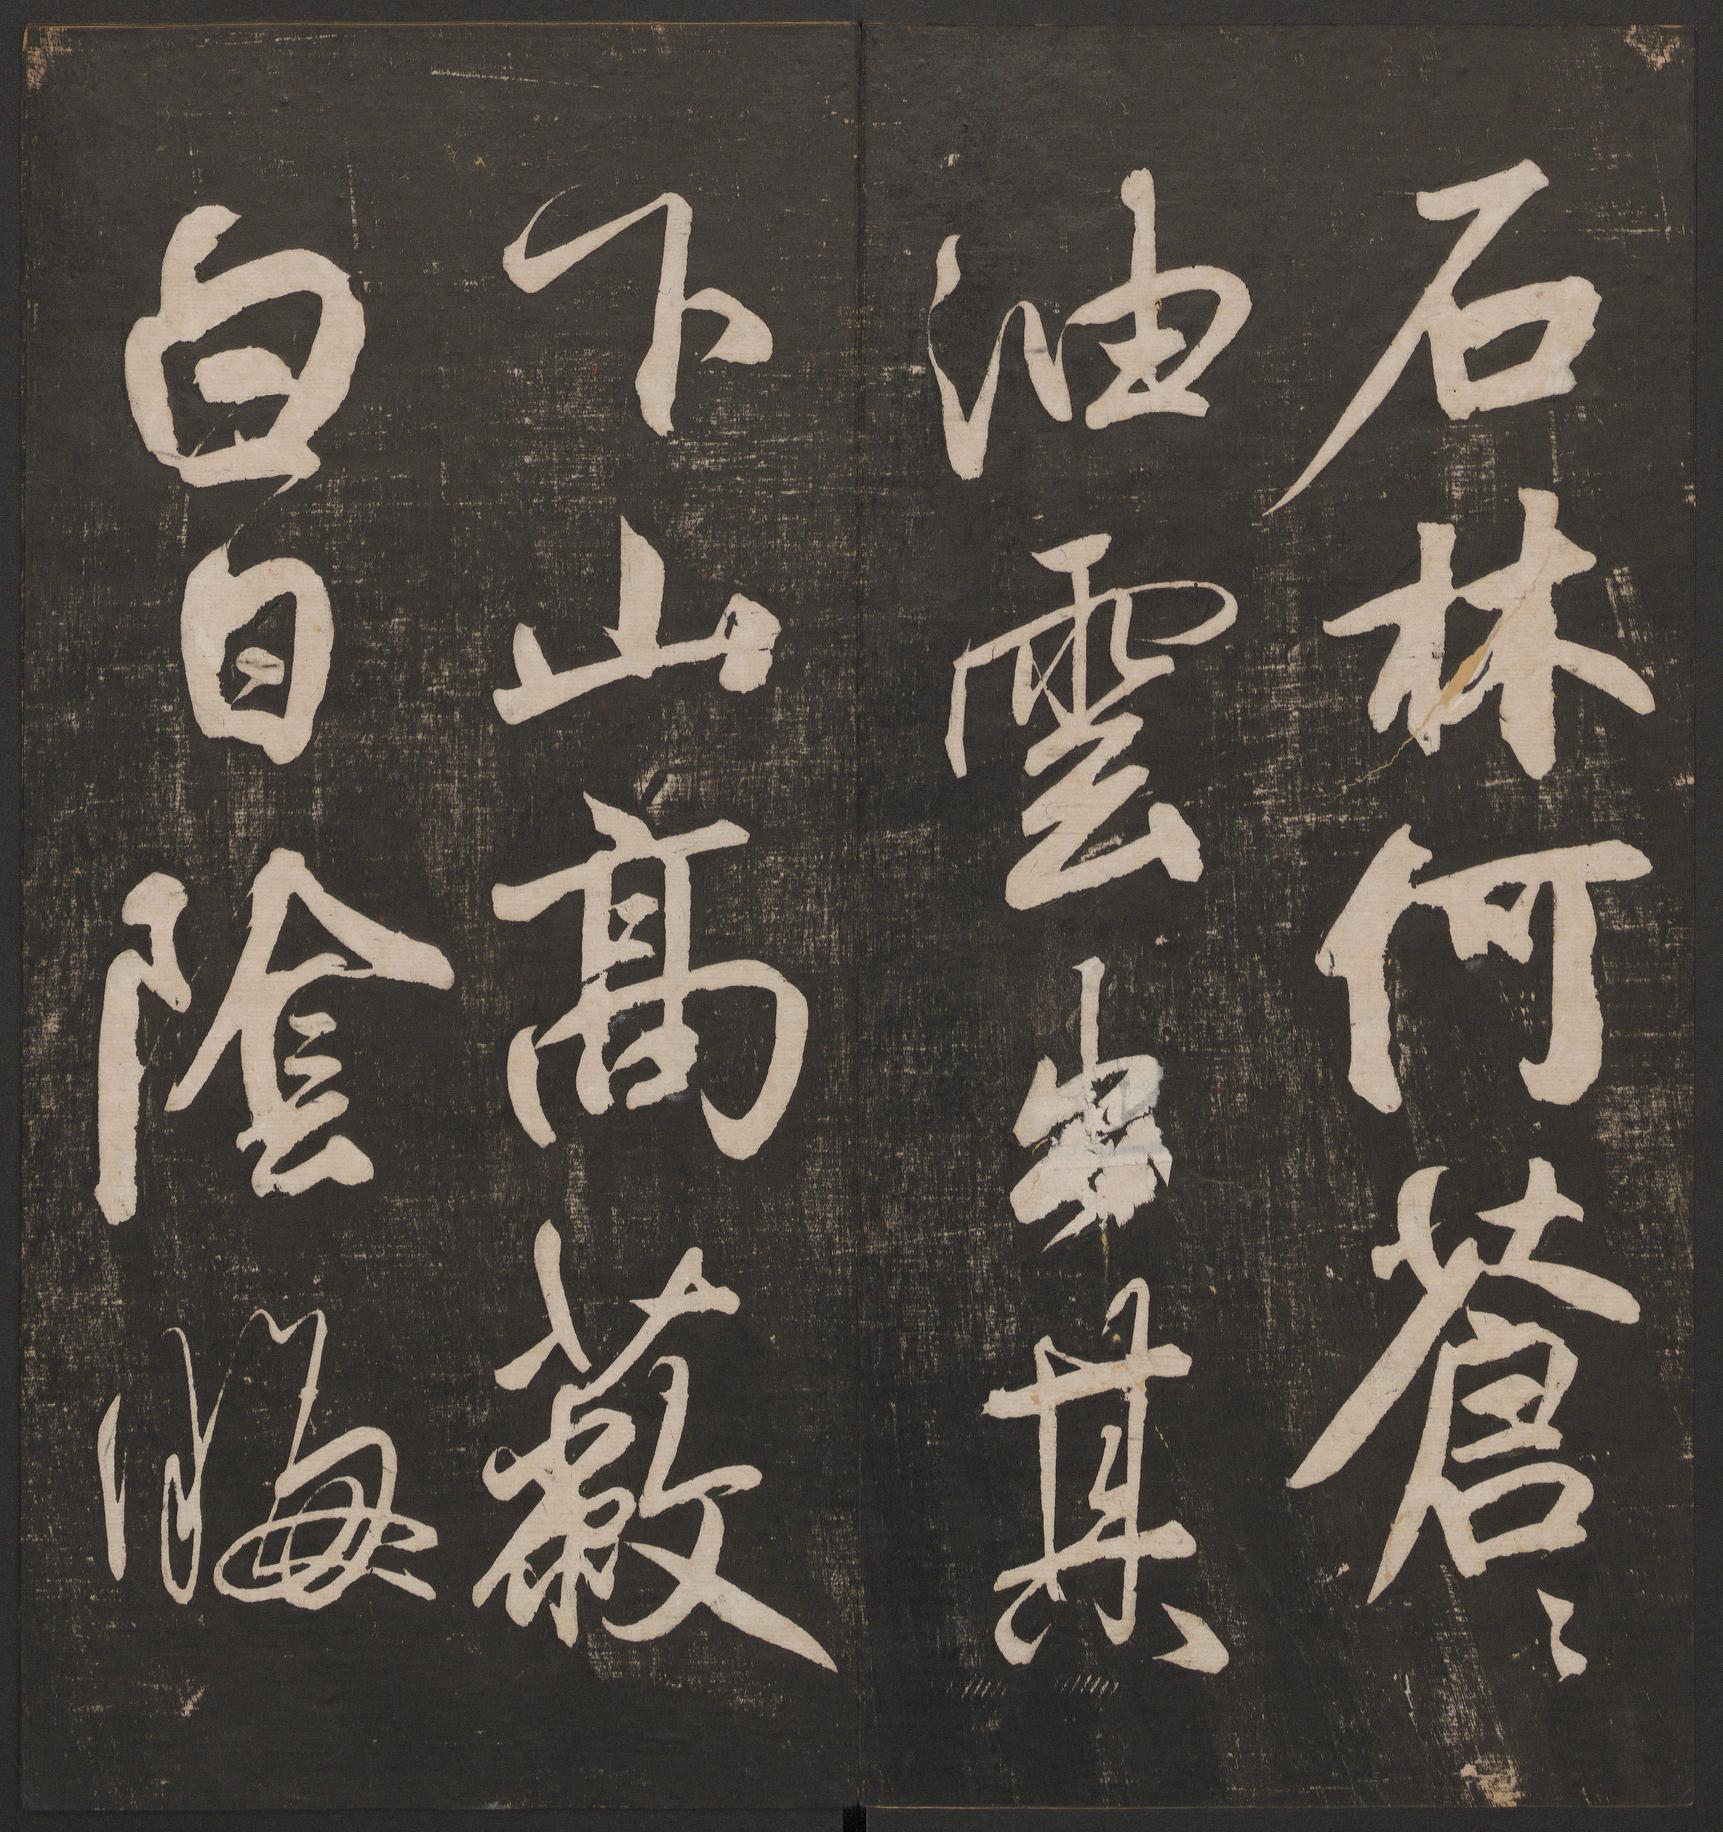 石林何蒼〻
油雲出其
下山高蔽
白日陰晦